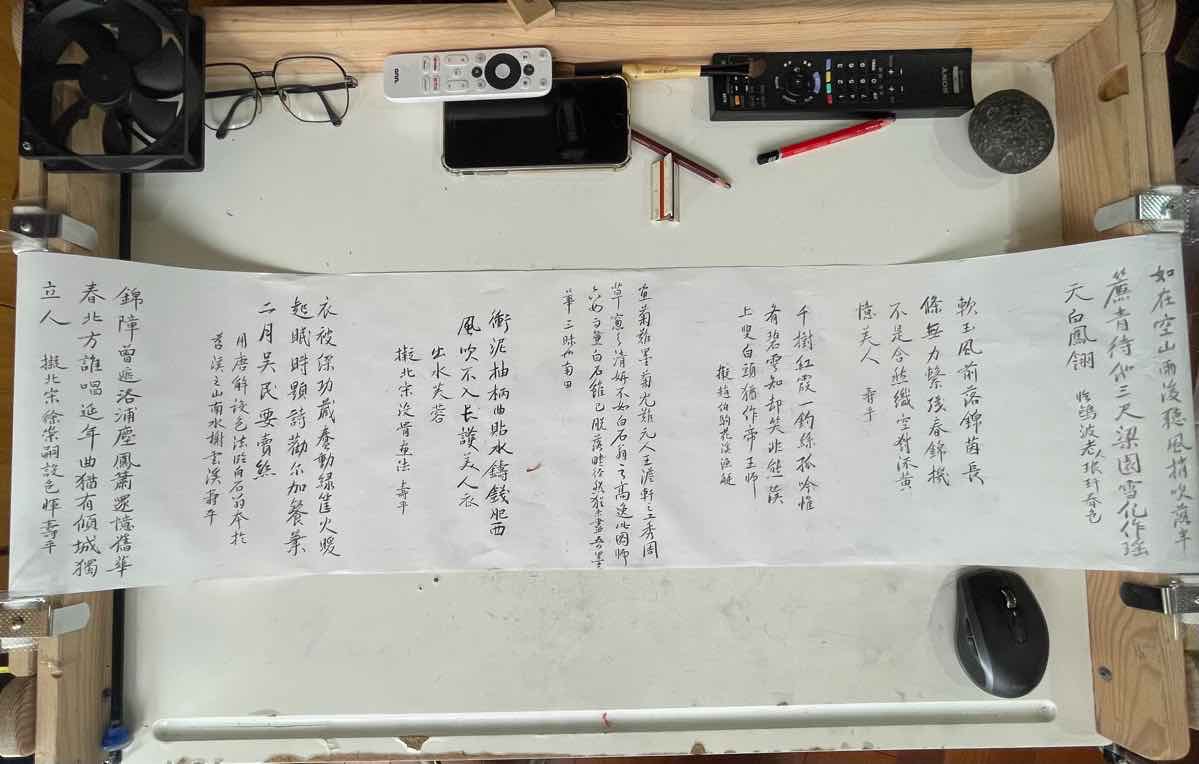 如在空山雨後聽風梢吹落半
簾青待 三尺梁園雪化作瑤
天白鳳翎 臨鷗波老人琅玕春色
軟玉風前落錦茵長
條無力繫殘春錦機
不是合歡織空對流黃
憶美人 壽平
千樹紅霞一釣絲孤吟惟
看碧雲知却笑非熊
上叟白頭猶作帝王師
擬趙伯駒花溪漁艇
畫菊難墨菊尤難元人王澹軒之秀潤
草窗之清妍不如白石翁之高逸此図師
白石 已脫落
筆三昧也南田
衝泥抽柄曲貼水鑄錢肥西
風吹不入長護美人衣
出水芙蓉
擬北宋沒骨畫法 壽平
衣被深功藏蠢動綠筐火暖
起眠時題詩勸尔加餐葉
二月吳民要賣絲
用唐解設色法臨白石翁本於
苕溪之山南水樹書溪壽平
錦障曾遮洛浦塵鳳簫還憶舊華
春北方誰唱延年曲猶有傾城獨
立人 擬北宋徐崇嗣設色惲壽平
onn.
SONY